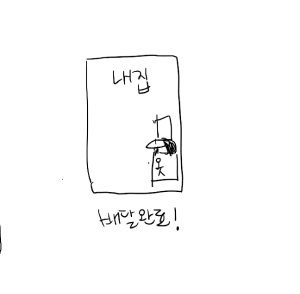 내집
옷
배달완료!